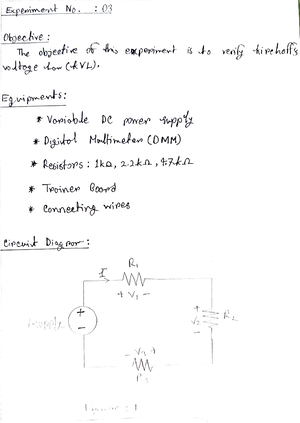 Experiment No. : 03
Objective :
The objective of this experiment is to verify kirchoff's
voltage law (KVL).
Equipments :
* Variable DC power supply
* Digital Multimeter (DMM)
* Resistors : 1kΩ, 2.2kΩ, 4.7kΩ
* Trainer Board
* Connecting wires
Circuit Diagram :
I
R₁
+ V₁ -
+
-
+
V₂
-
R₂
- V₃ +
R₃